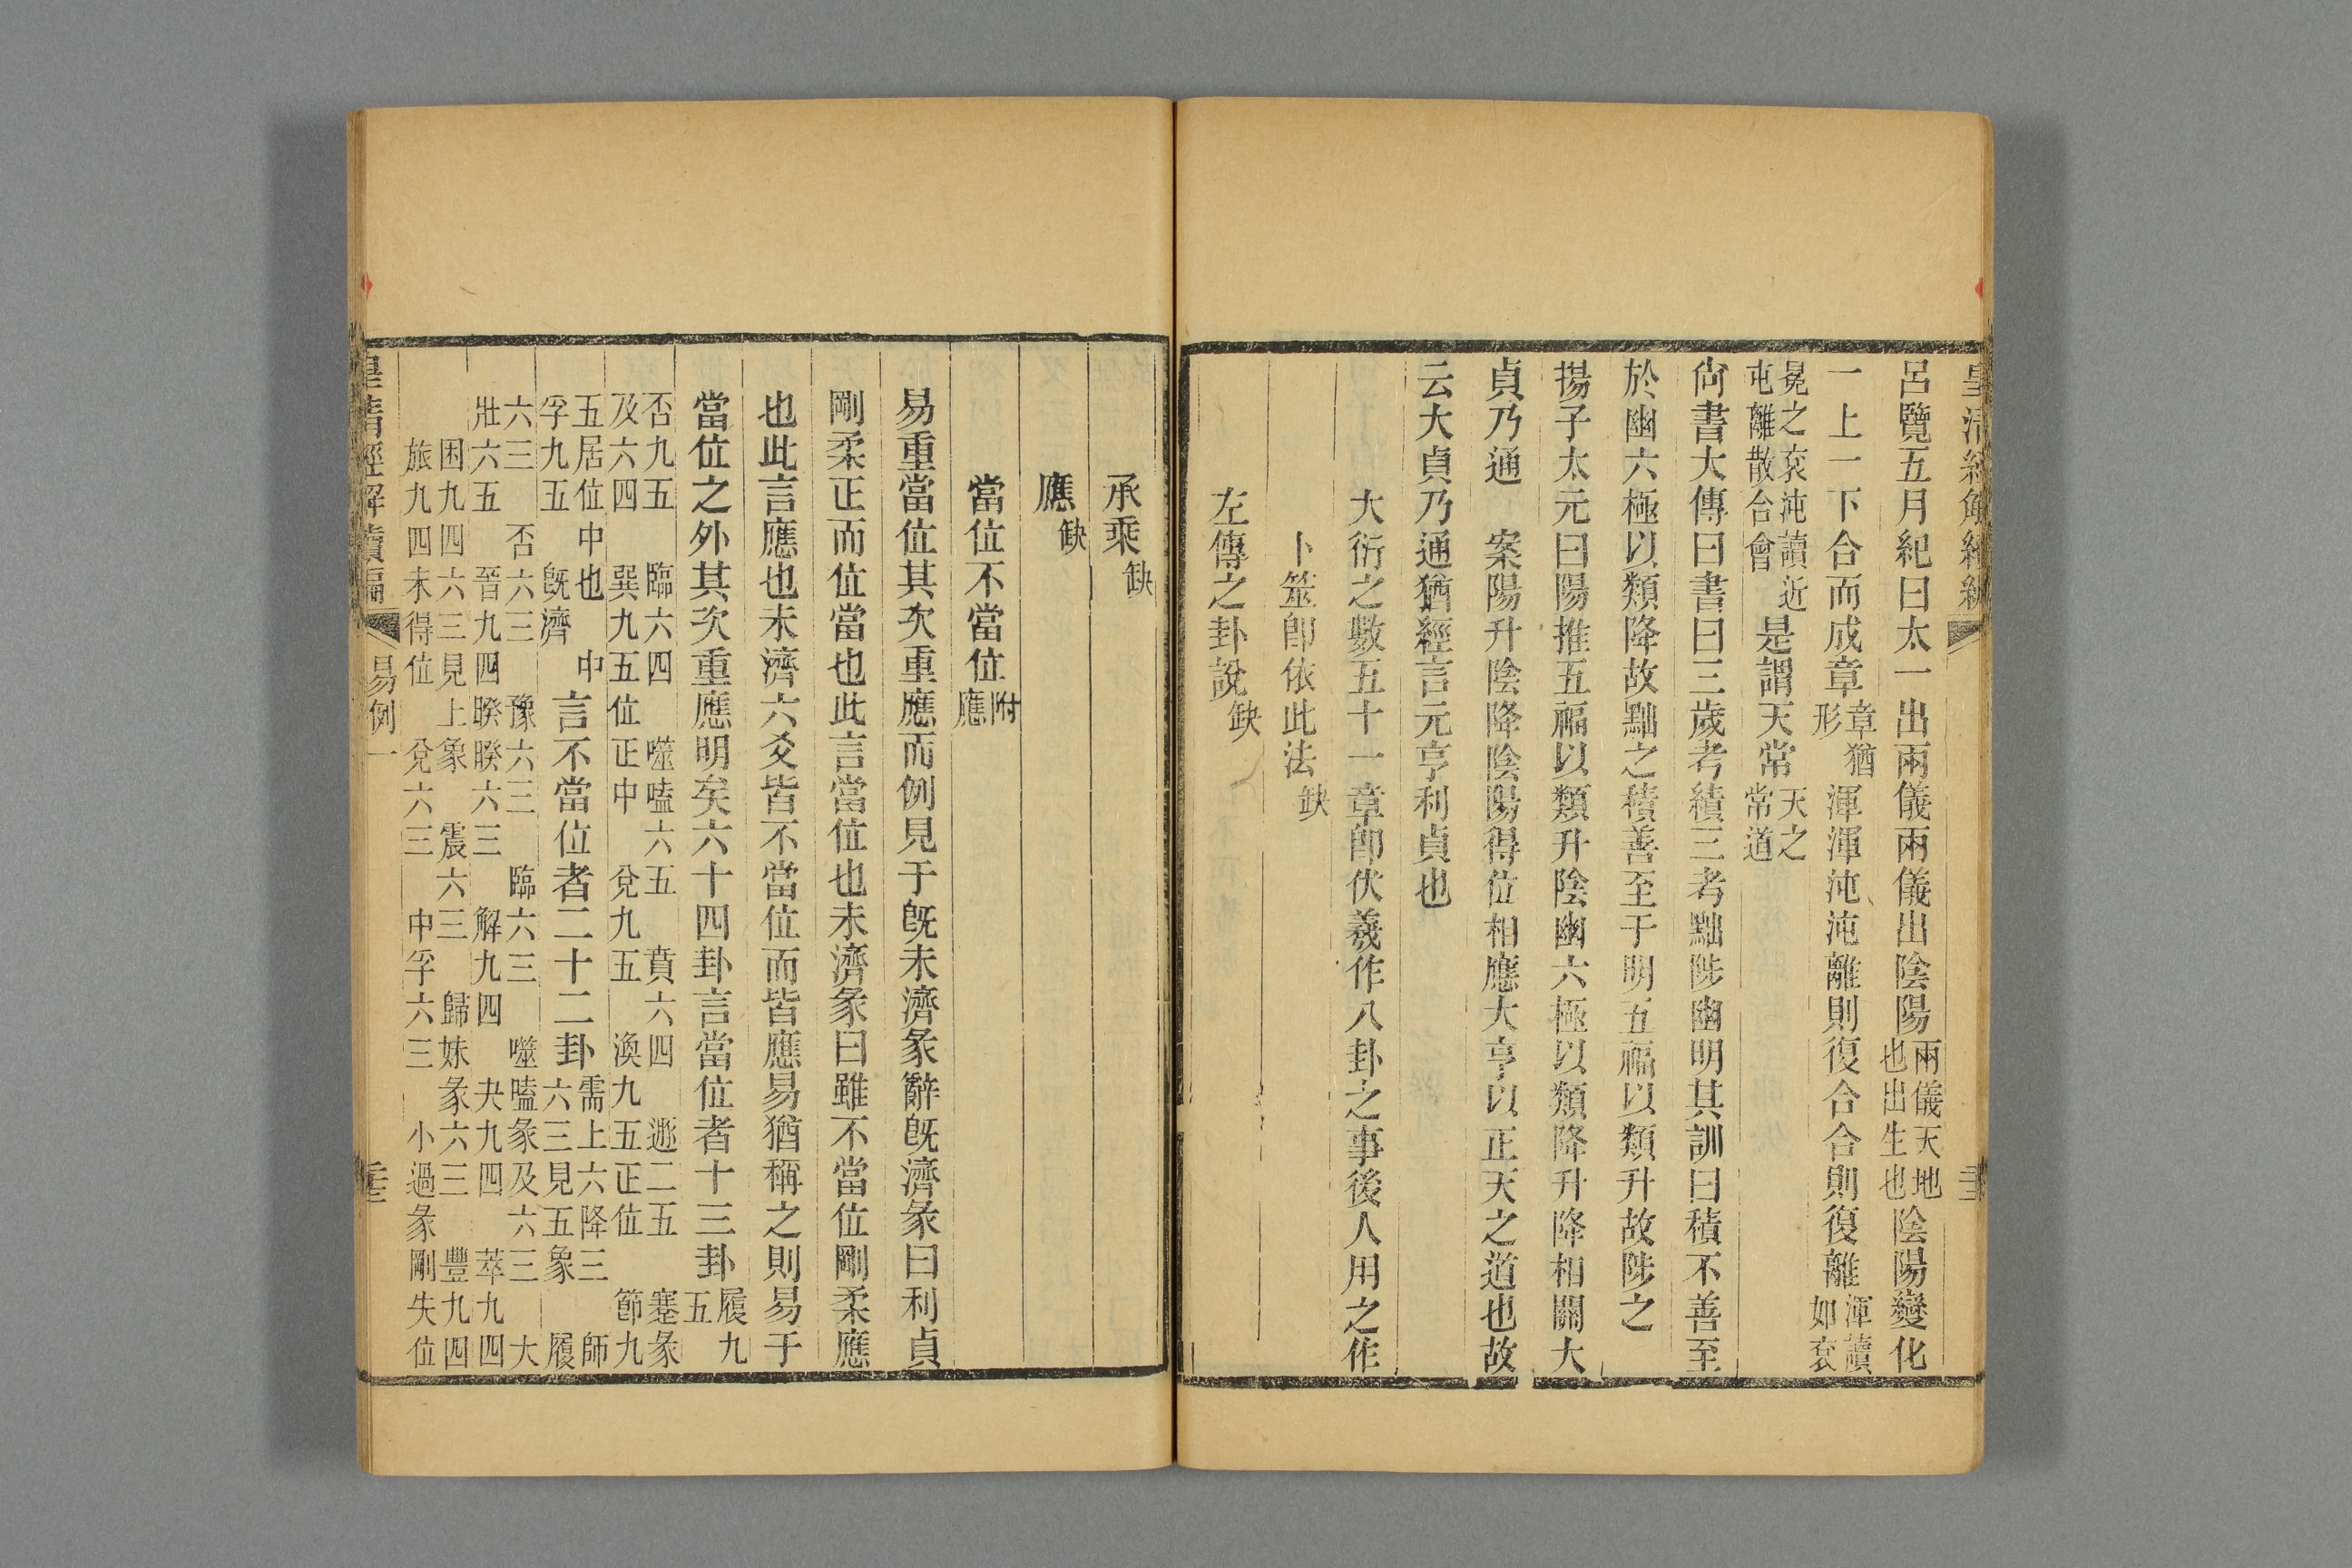 呂覽五月紀曰太一出兩儀兩儀出陰陽兩儀天地也出生也陰陽變化
一上一下合而成章章猶形渾渾沌沌離則復合合則復離渾讀如袞
冕之袞沌讀近屯離散合會是謂天常天之常道
尙書大傳曰書曰三歲考績三考黜陟幽明其訓曰積不善至
於幽六極以類降故黜之積善至于明五福以類升故陟之
揚子太元曰陽推五福以類升陰幽六極以類降升降相關大
貞乃通　案陽升陰降陰陽得位相應大亨以正天之道也故
云大貞乃通猶經言元亨利貞也
大衍之數五十一章卽伏羲作八卦之事後人用之作
卜筮卽依此法缺
左傳之卦說缺
承乘缺
應缺
當位不當位附應
易重當位其次重應而例見于旣未濟彖辭旣濟彖曰利貞
剛柔正而位當也此言當位也未濟彖曰雖不當位剛柔應
也此言應也未濟六爻皆不當位而皆應易猶稱之則易于
當位之外其次重應明矣六十四卦言當位者十三卦履九五
否九五　臨六四　噬嗑六五　賁六四　遯二五　蹇彖
及六四　巽九五位正中　兌九五　渙九五正位　節九
五居位中也　中孚九五　旣濟言不當位者二十二卦需上六降三　師六三見五象　履
六三　否六三　豫六三　臨六三　噬嗑彖及六三　大
壯六五　晉九四　睽睽六三　解九四　夬九四　萃九四
困九四六三見上象　震六三　歸妹彖六三　豐九四
旅九四未得位　兌六三　中孚六三　小過彖剛失位
皇清經解續編　易例一